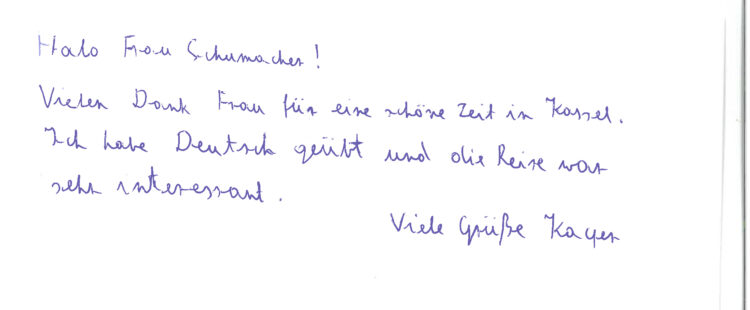 Halo Frau Schumacher!
Vielen Dank Frau für eine schöne Zeit in Kassel.
Ich habe Deutsch geübt und die Reise war
sehr interessant.
Viele Grüße Kayen